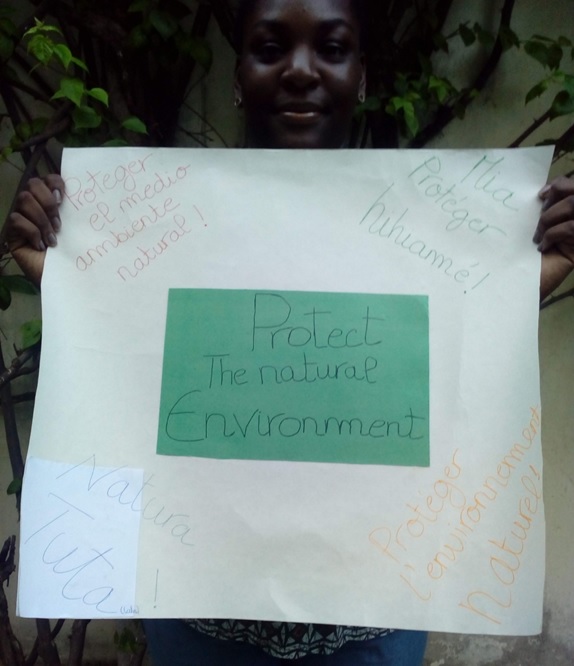 Proteger
el medio
ambiente
natural!
Mia
Protéger
hihiamé!
Protect
The natural
Environment
Natura
Tuta
!
Protéger
l'environnement
Naturel!